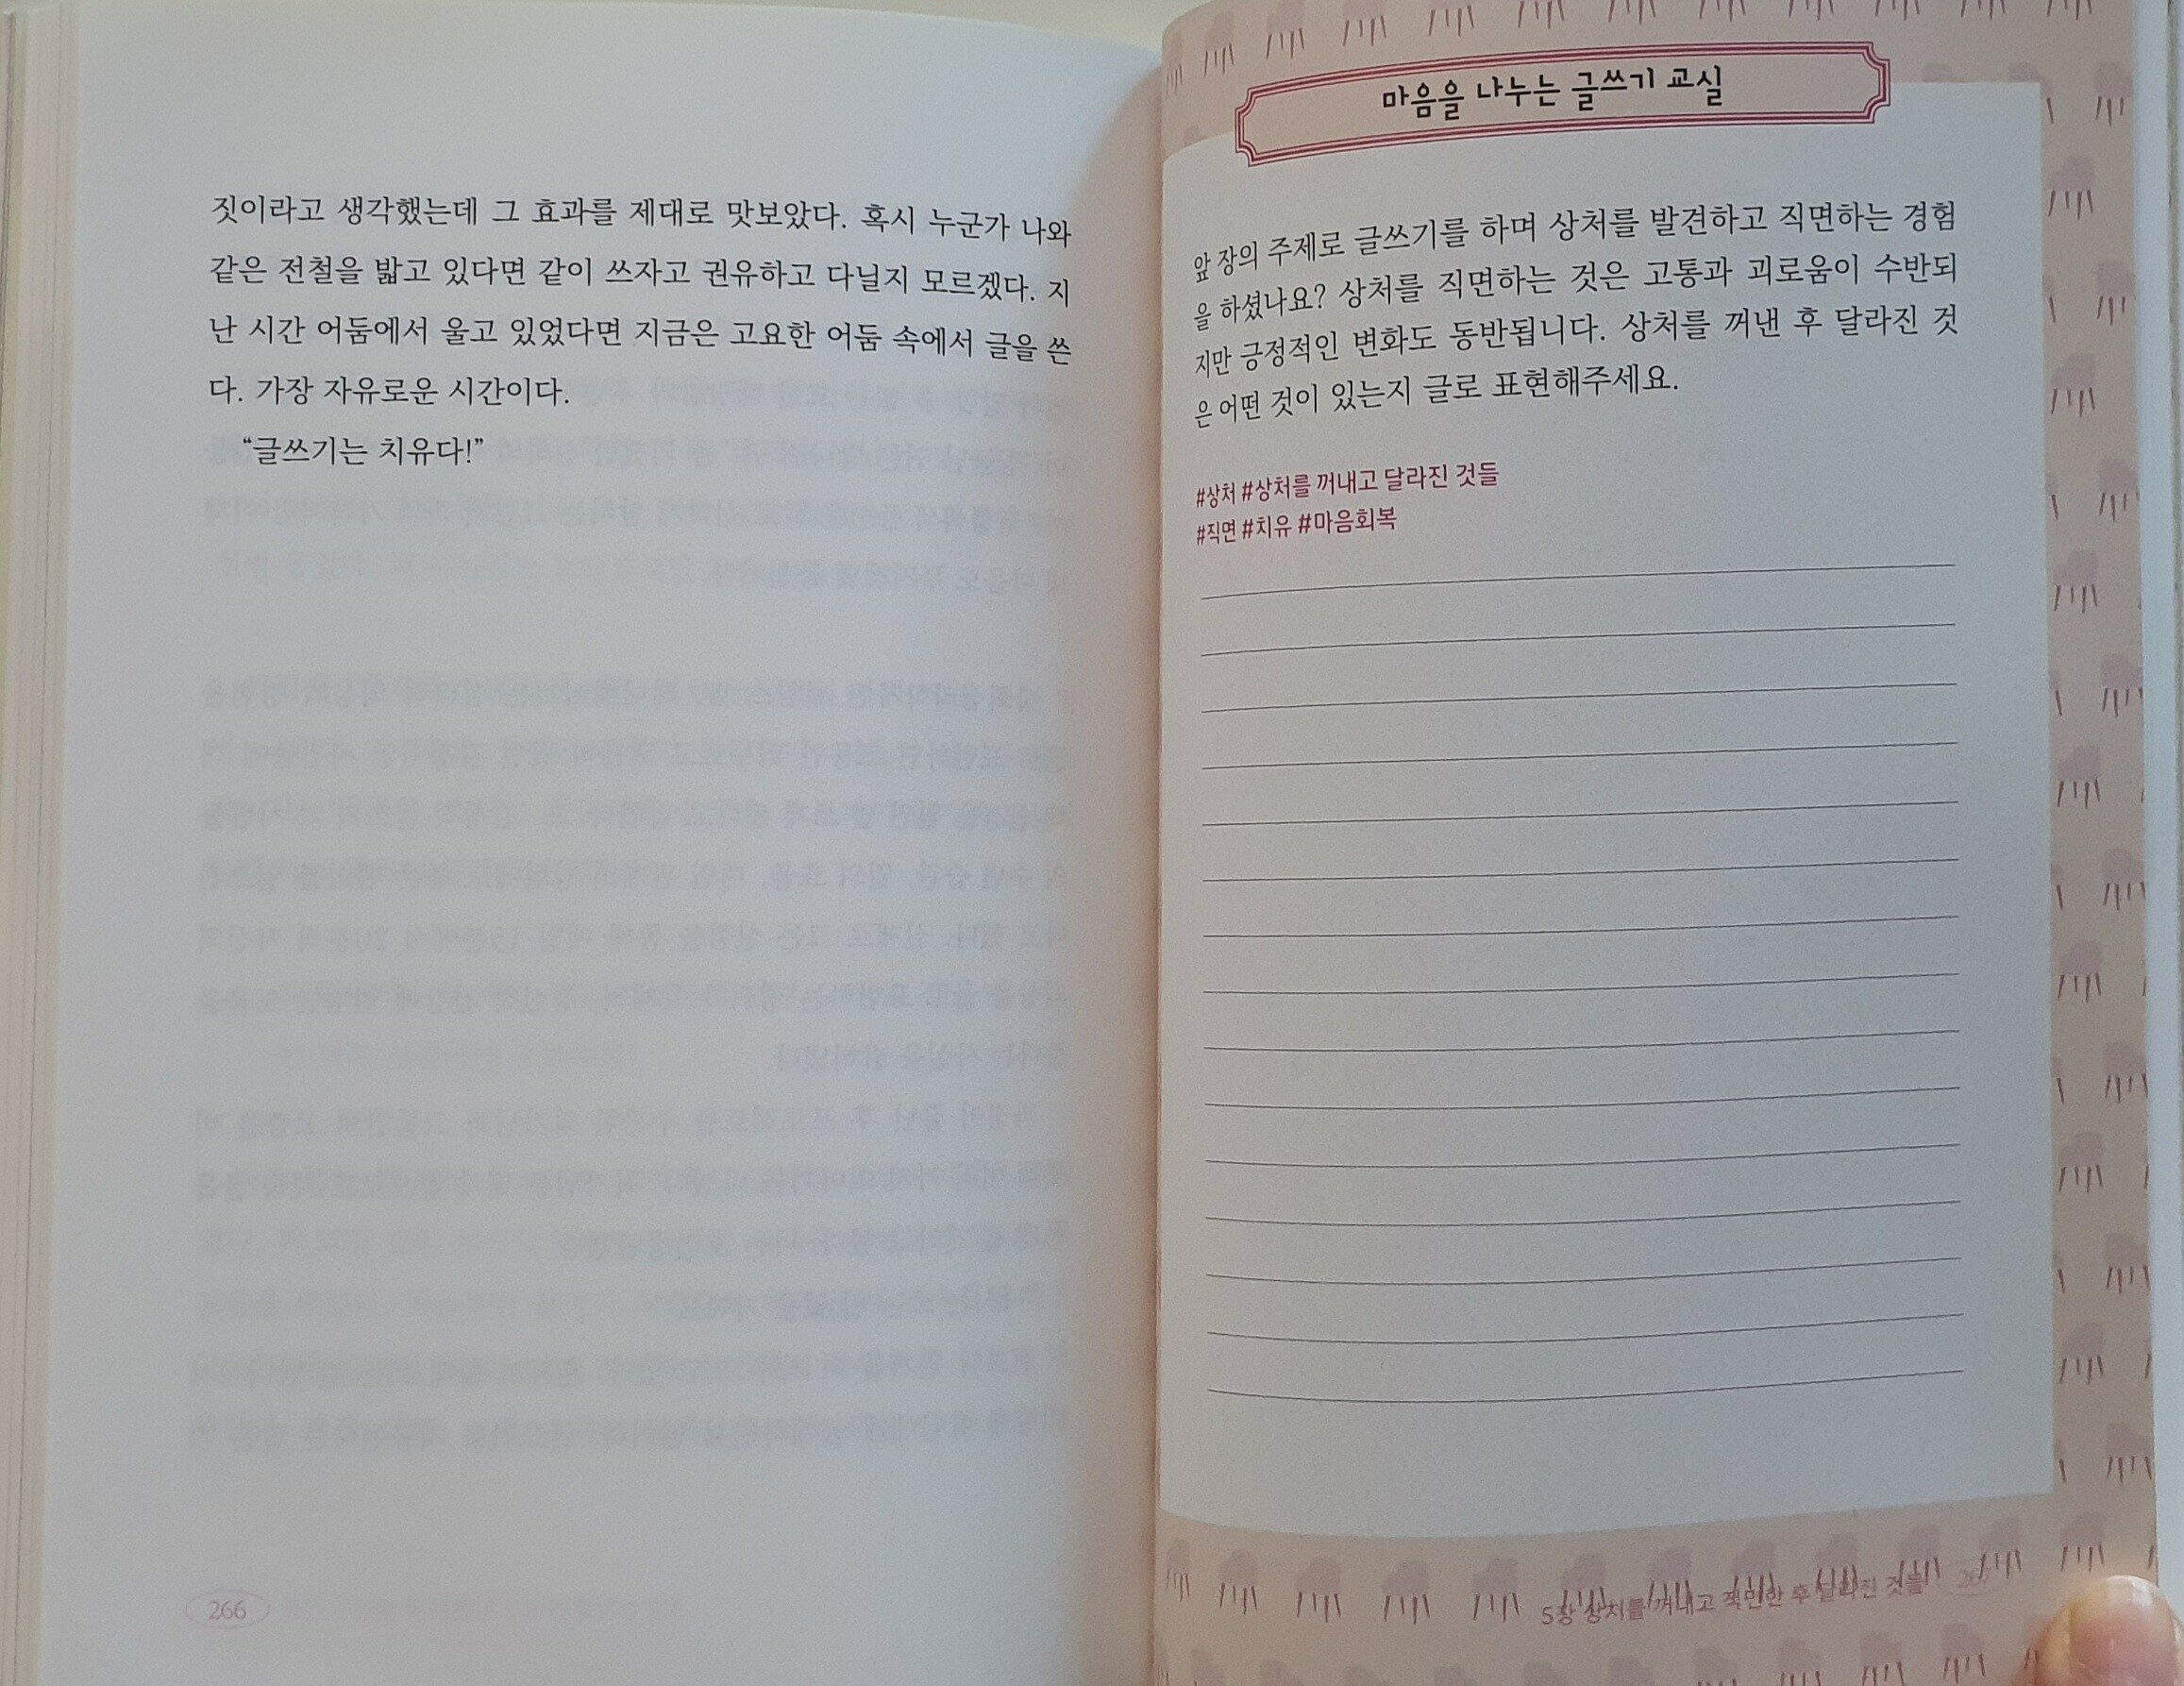 짓이라고 생각했는데 그 효과를 제대로 맛보았다. 혹시 누군가 나와
같은 전철을 밟고 있다면 같이 쓰자고 권유하고 다닐지 모르겠다. 지
난 시간 어둠에서 울고 있었다면 지금은 고요한 어둠 속에서 글을 쓴
다. 가장 자유로운 시간이다.
“글쓰기는 치유다!”
266
마음을 나누는 글쓰기 교실
앞 장의 주제로 글쓰기를 하며 상처를 발견하고 직면하는 경험
을 하셨나요? 상처를 직면하는 것은 고통과 괴로움이 수반되
지만 긍정적인 변화도 동반됩니다. 상처를 꺼낸 후 달라진 것
은 어떤 것이 있는지 글로 표현해주세요.
#상처 #상처를 꺼내고 달라진 것들
#직면 #치유 #마음회복
5장 상처를 꺼내고 직면한 후 달라진 것들